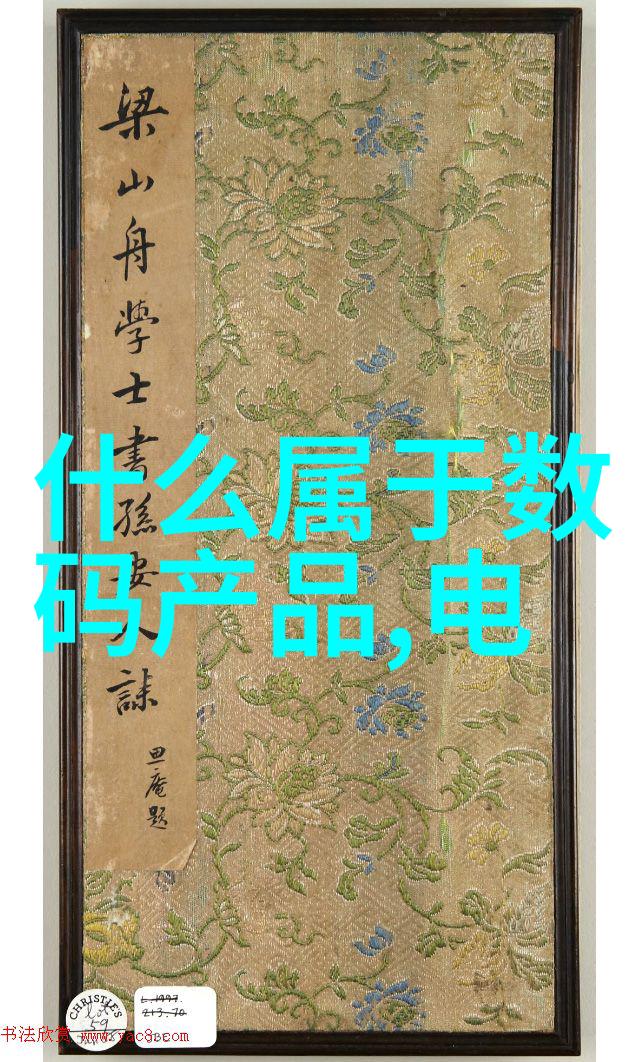 梁山舟學士書孫安人誄
庵題
什么属于数
码产品,电
CHRISTIE'S
Lot
59
L.1997.
213.70
书法欣赏 www.yac8.com